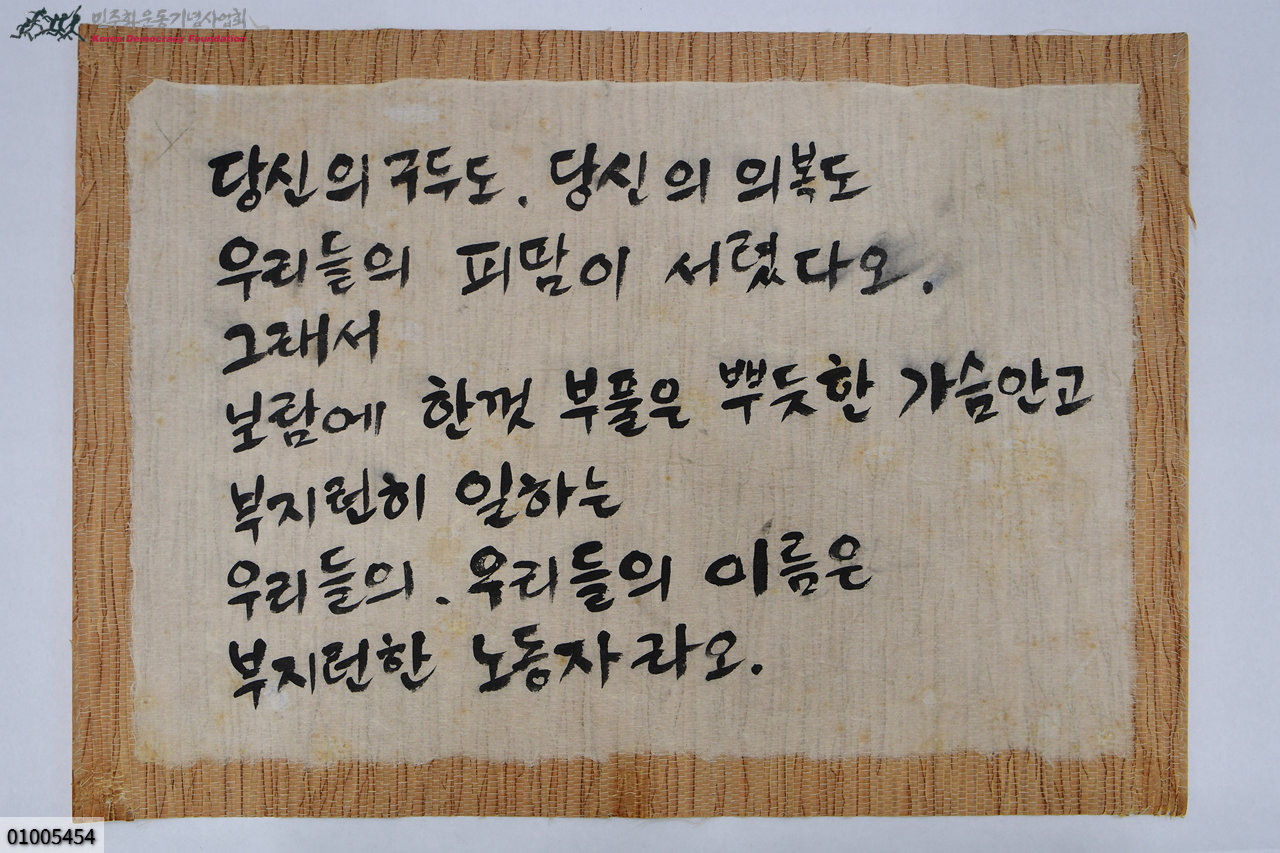 민주화운동기념사업회
Korea Democracy Foundation
당신의 구두도. 당신의 의복도
우리들의 피땀이 서렸다오.
그래서
보람에 한껏 부풀은 뿌듯한 가슴안고
부지런히 일하는
우리들의. 우리들의 이름은
부지런한 노동자라오.
01005454